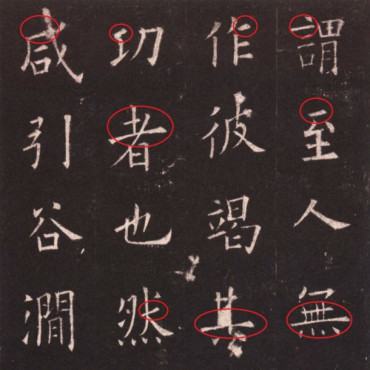 謂至人無
作彼竭其
功者也然
咸引谷澗